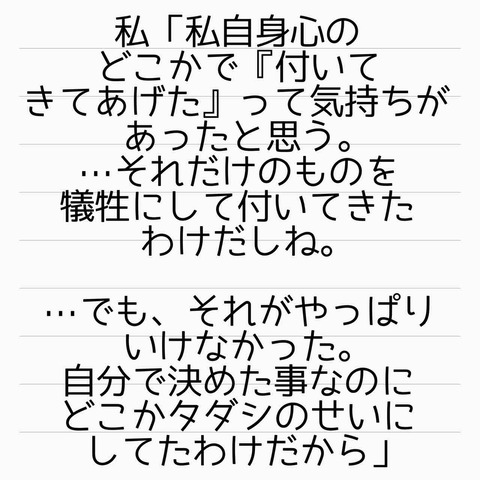 私「私自身心の
どこかで『付いて
きてあげた』って気持ちが
あったと思う。
…それだけのものを
犠牲にして付いてきた
わけだしね。
…でも、それがやっぱり
いけなかった。
自分で決めた事なのに
どこかタダシのせいに
してたわけだから」